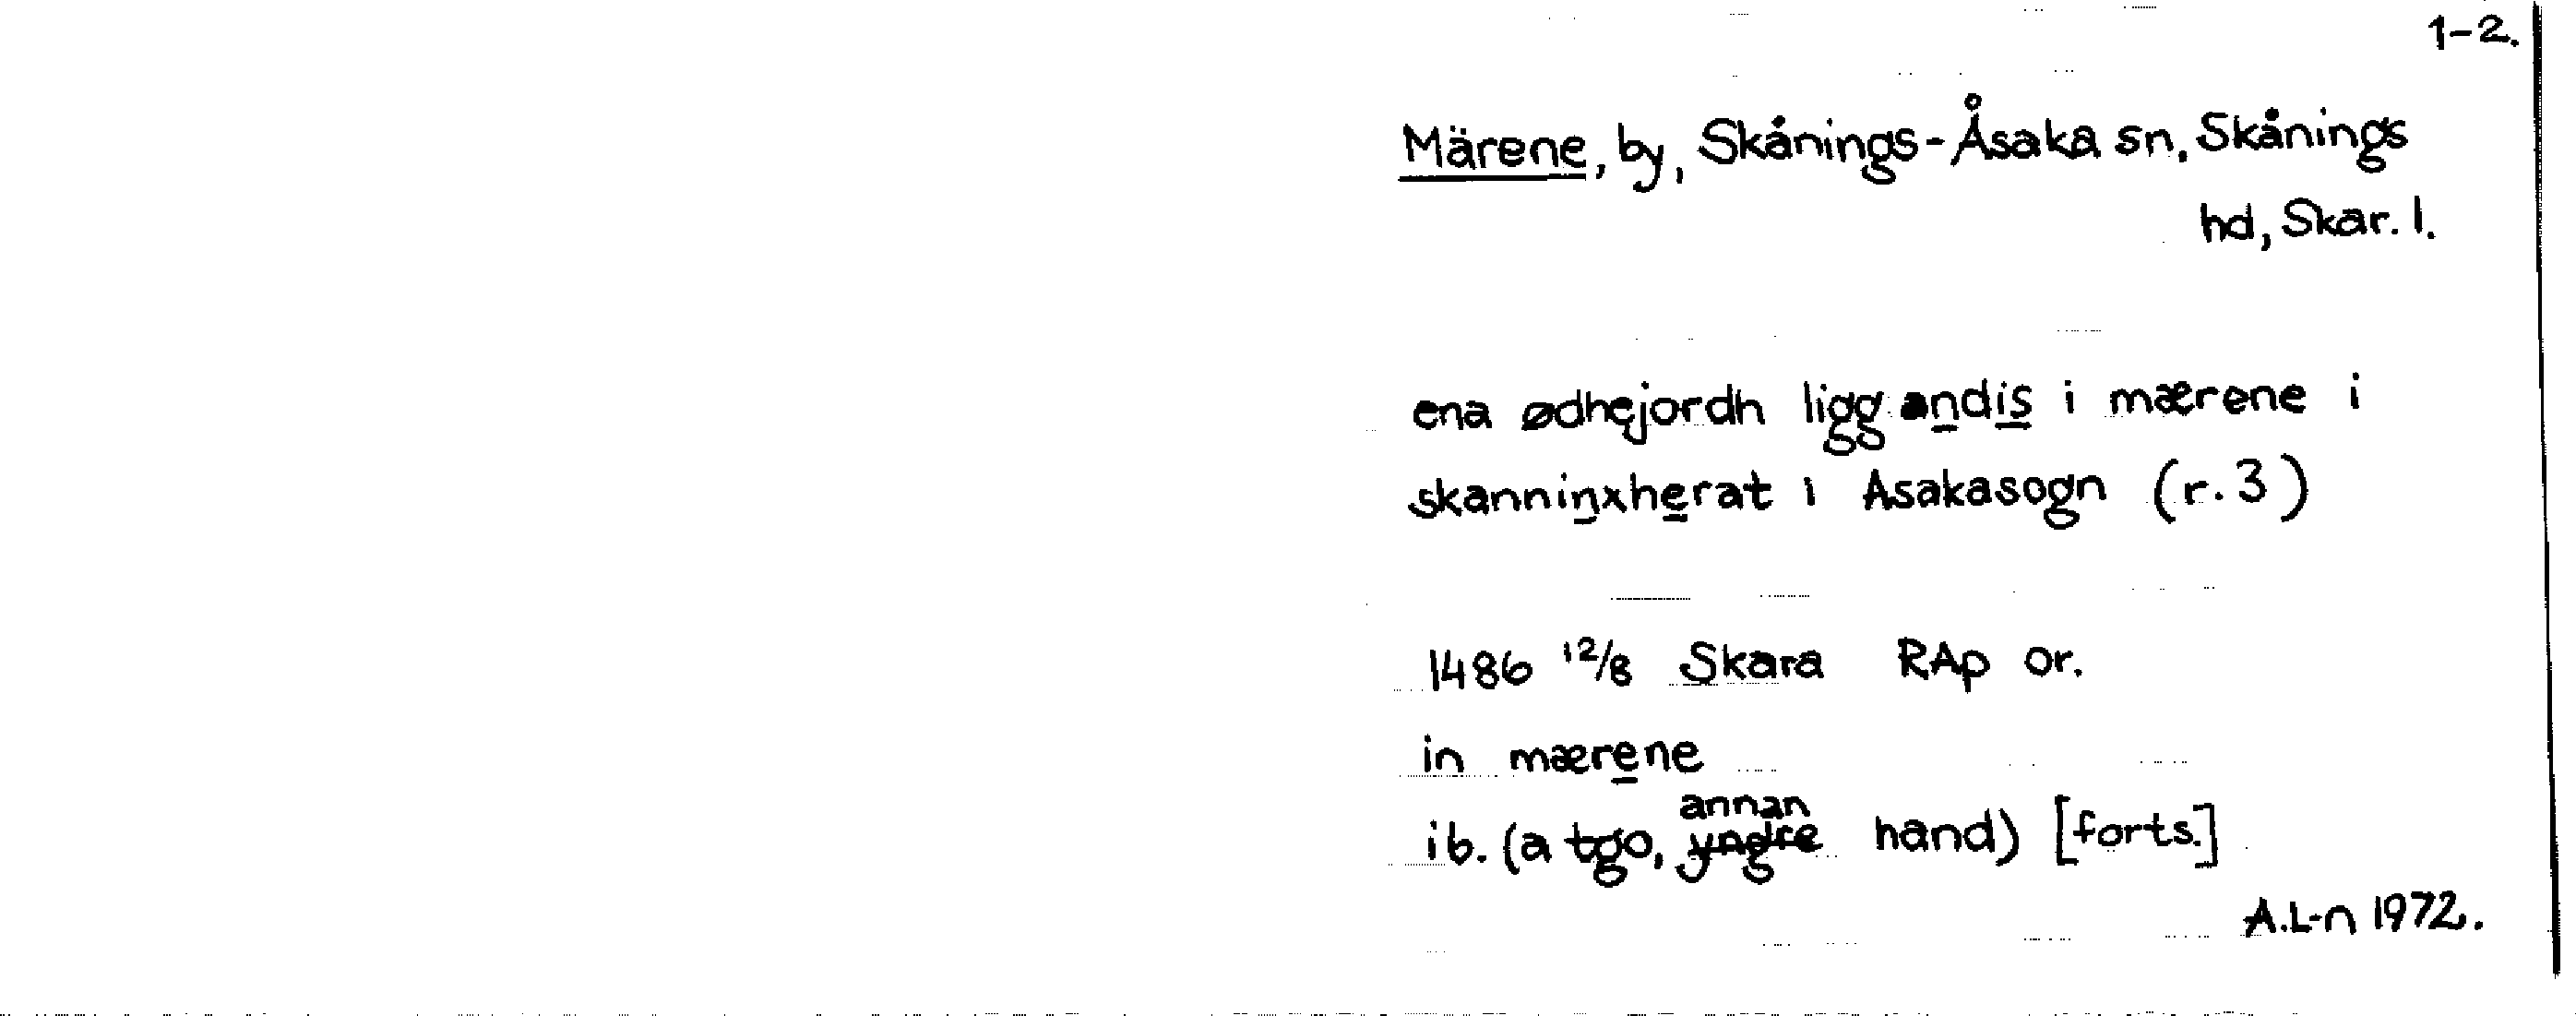 1-2.
Märene, by, Skånings-Åsaka sn, Skånings
hd, Skar. l.
ena ødhejordh liggandis i mærene i
skanninxherat i Asakasogn (r. 3)
1486 12/8 Skara RAp or.
in mærene
annan
ib. (a tgo, yngre hand) [forts.]
A.L-n 1972.